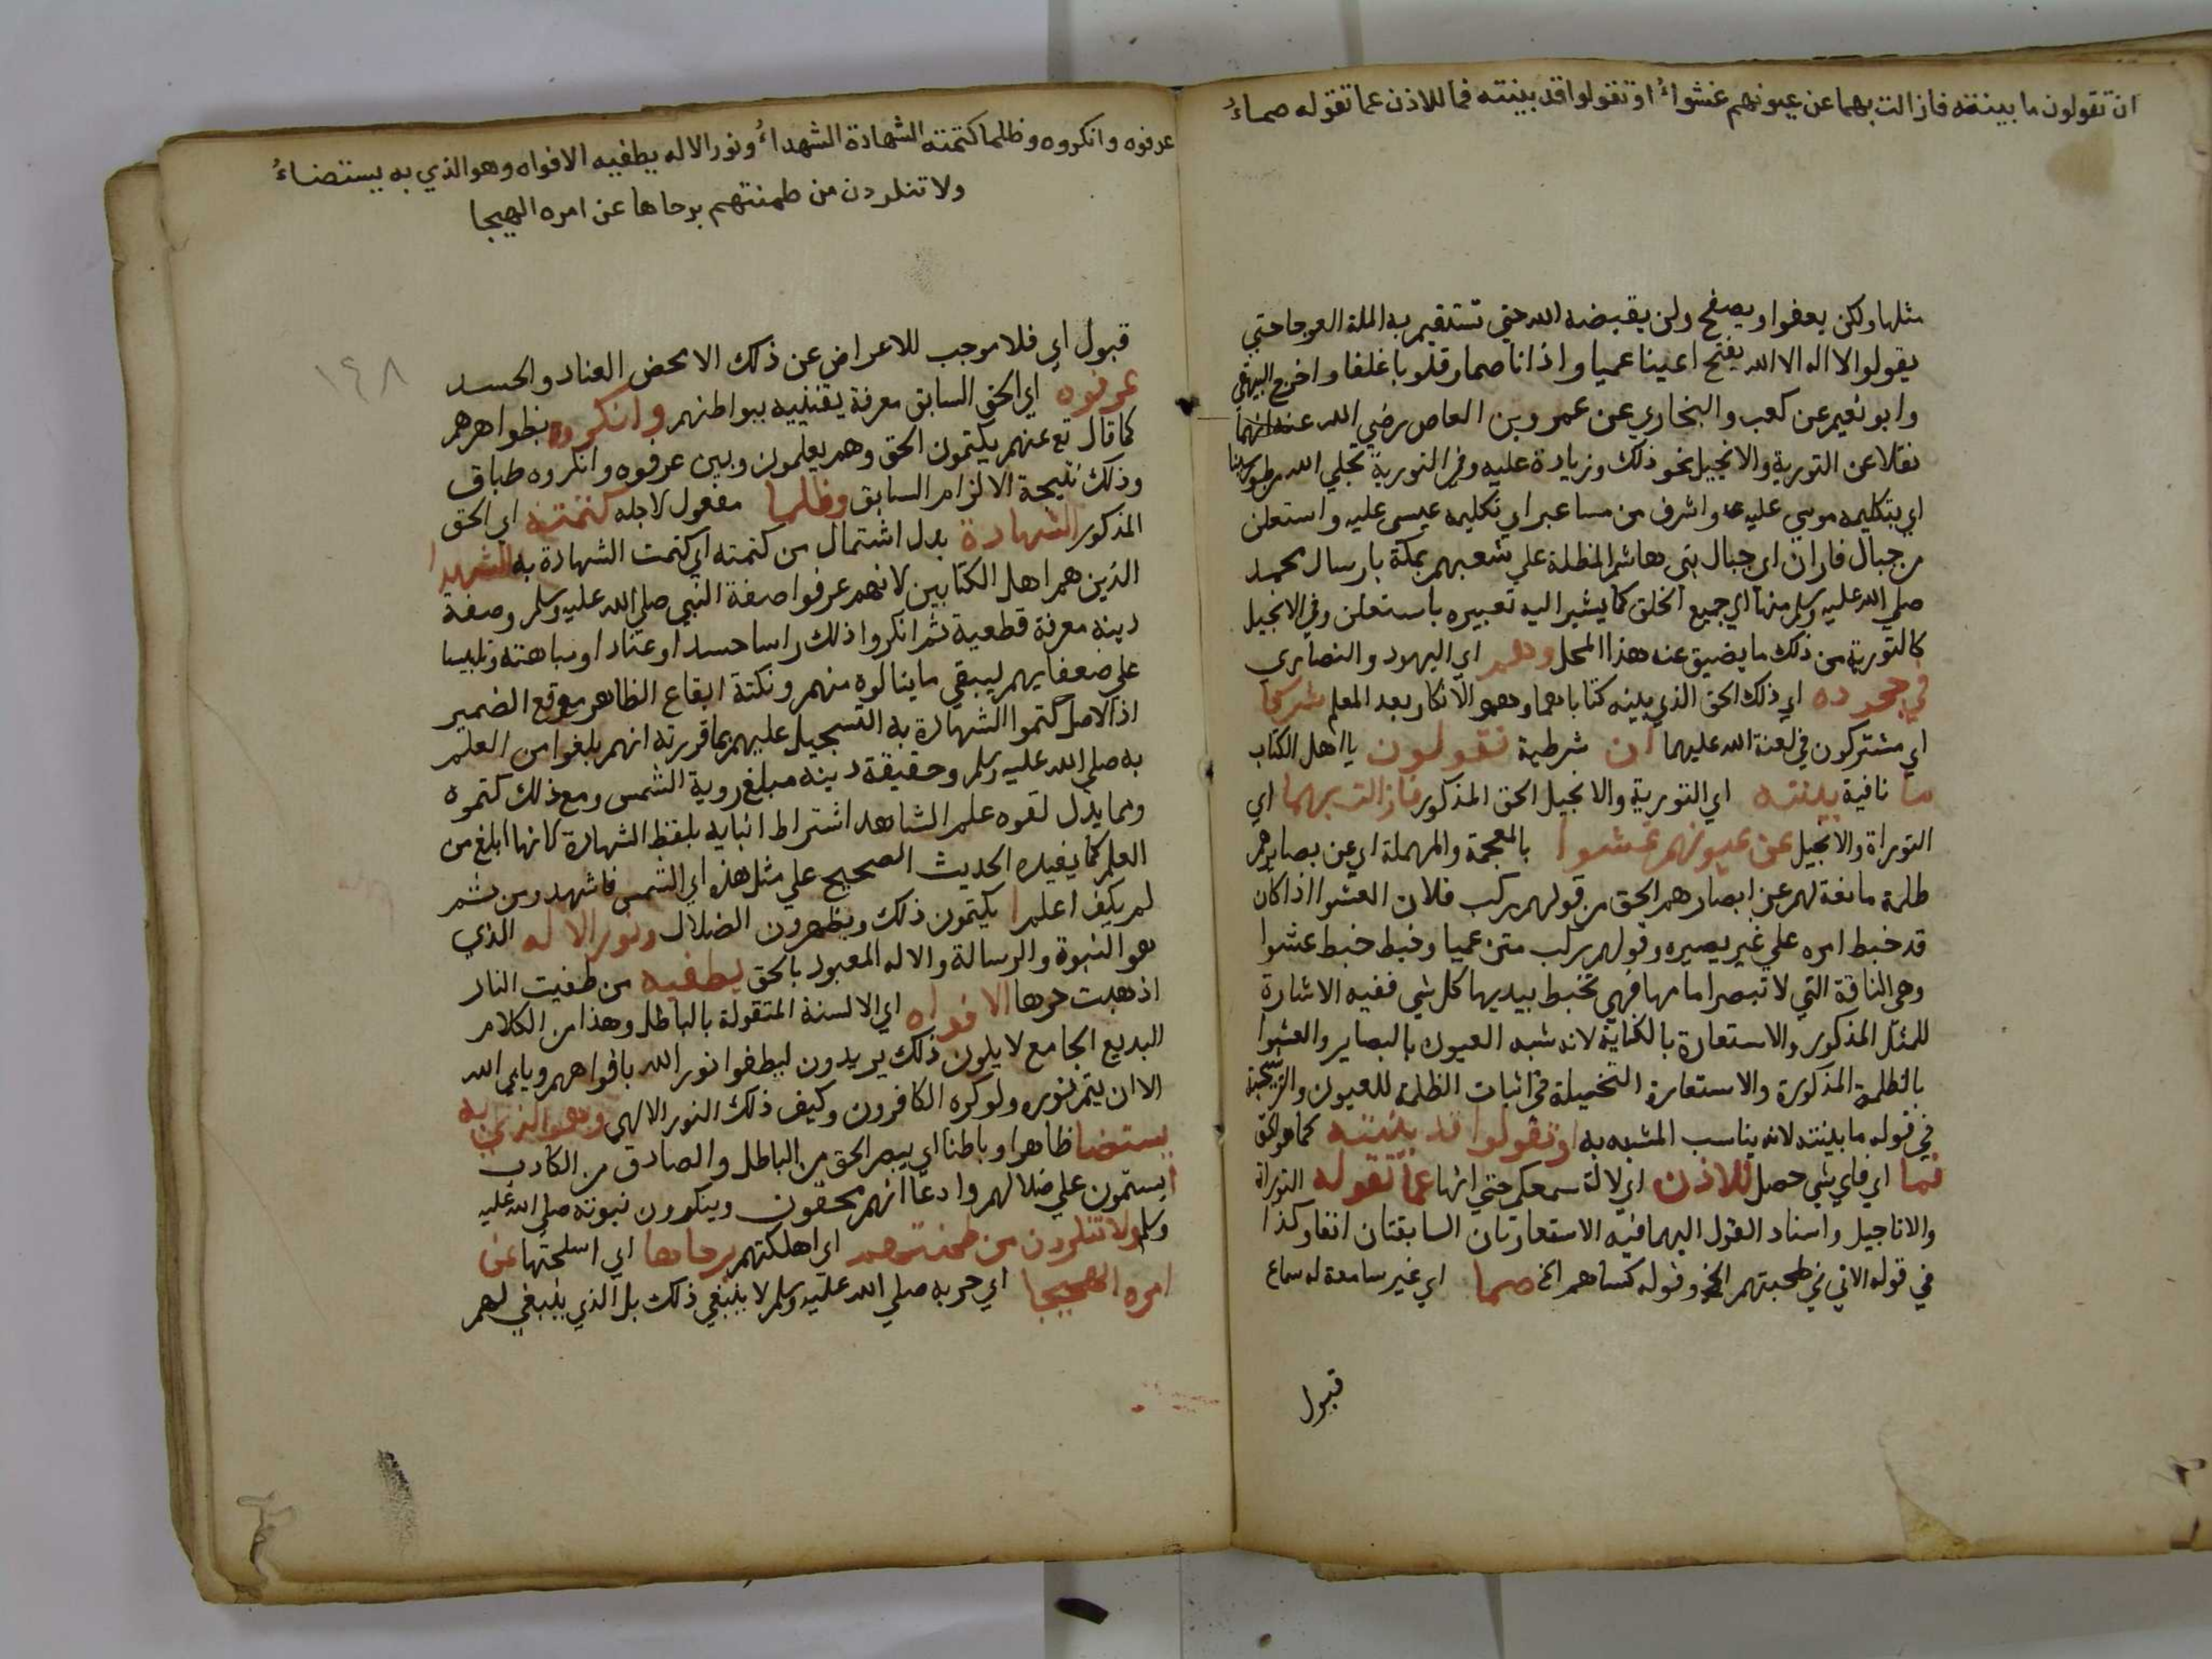 ان تقولون ما بينته فازالت بهما عن عيونهم غشواءُ او تقولوا قد بينته فما للاذن عما تقوله صماءُ
مثلها ولكن يعفوا ويصفح ولن يقبضه الله حتى تستقيم به الملة العوجا حتي
يقولوا لا اله الا الله يفتح اعينا عميا واذانا صما وقلوبا غلفا واخرج البيهقي
وابو نعيم عن كعب والبخاري عن عمرو بن العاص رضي الله عنه انهما
نقلا عن التورية والانجيل نحو ذلك وزيادة عليه وفي التورية تجلي الله من طور سينا
اي بتكليمه موسي عليه واشرف من ساعير اي تكليمه عيسى عليه واستعلن
من جبال فاران اي جبال بني هاشم المظلة علي شعبهم بمكة بارسال محمد
صلي الله عليه وسلم منها الي جميع الخلق كما يشير اليه تعبيره باستعلن وفي الانجيل
كالتورية من ذلك ما يضيق عنه هذا المحل وهم اي اليهود والنصاري
في جحوده اي ذلك الحق الذي بينه كتاباهما وهو الانكار بعد العلم شركا
اي مشتركون في لعنة الله عليهما ان شرطية تقولون يا اهل الكتاب
ما نافية بينته اي التورية والانجيل الحق المذكور فازالت بهما اي
التوراة والانجيل عن عيونهم غشوا بالمعجمة والمهملة اي عن بصايرهم
ظلمة مانعة لهم عن ابصارهم الحق من قولهم ركب فلان العشوا اذا كان
قد خبط امره علي غير بصيره وقولهم ركب متن عميا وخبط خبط عشوا
وهي الناقة التي لا تبصر امامها فهي تخبط بيديها كل شي ففيه الاشارة
للمثل المذكور والاستعارة بالكناية لانه شبه العيون بالبصاير والعشوا
بالظلمة المذكورة والاستعارة التخييلة في اثبات الظلمة للعيون والترشيحية
في قوله ما بينته لانه يناسب المشبه به او تقولوا قد بينته كما هو الحق
فما اي فاي شي حصل للاذن اي لالة سمعكم حتي انها عما تقوله التوراة
والاناجيل واسناد القول اليهما فيه الاستعارتان السابقتان انفا وكذا
في قوله الاتي في طحنتهم الخ وقوله كساهم الخ صما اي غير سامعة له سماع
قبول
عرفوه وانكروه وظلما كتمته الشهادة الشهداءُ ونور الاله يطفيه الافواه وهو الذي به يستضاءُ
ولا تنكرون من طحنتهم برحاها عن امره الهيجا
١٤٨
قبول اي فلا موجب للاعراض عن ذلك الا محض العناد والحسد
عرفوه اي الحق السابق معرفة يقينيه ببواطنهم وانكروه بظواهرهم
كما قال تع عنهم يكتمون الحق وهم يعلمون وبين عرفوه وانكروه طباق
وذلك نتيجة الالزام السابق وظلما مفعول لاجله كتمته اي الحق
المذكور الشهادة بدل اشتمال من كتمته اي كتمت الشهادة به الشهدا
الذين هم اهل الكتابين لانهم عرفوا صفة النبي صلي الله عليه وسلم وصفة
دينه معرفة قطعية ثم انكروا ذلك راسا حسدا وعنادا ومباهتة وتلبيسا
علي ضعفايهم ليبقي ما ينالوه منهم ونكتة ايقاع الظاهر موقع الضمير
اذ الاصل كتموا الشهادة به التسجيل عليهم بما قررته انهم بلغوا من العلم
به صلي الله عليه وسلم وحقيقة دينه مبلغ روية الشمس ومع ذلك كتموه
ومما يدل لقوه علم الشاهد اشتراط اتيانه بلفظ الشهادة كانها ابلغ من
العلم كما يفيده الحديث الصحيح علي مثل هذه اي الشمس فاشهد ومن ثم
لم يكف اعلم يكتمون ذلك ويظهرون الضلال ونور الاله الذي
هو النبوة والرسالة والاله المعبود بالحق يطفيه من طفيت النار
اذهبت حرها الافواه اي الالسنة المتقولة بالباطل وهذا من الكلام
البديع الجامع لا يلون ذلك يريدون ليطفوا نور الله بافواههم ويابي الله
الا ان يتم نوره ولو كره الكافرون وكيف ذلك النور الالهي وهو الذي به
يستضا ظاهرا وباطنا اي يبصر الحق من الباطل والصادق من الكادب
ايستمرون علي ضلالهم وادعا انهم محقون وينكرون نبوته صلي الله عليه
وسلم ولا تنكرون من طحنتهم اي اهلكتهم برحاها اي اسلحتها عن
امره الهيجا اي حربه صلي الله عليه وسلم لا ينبغي ذلك بل الذي ينبغي لهم